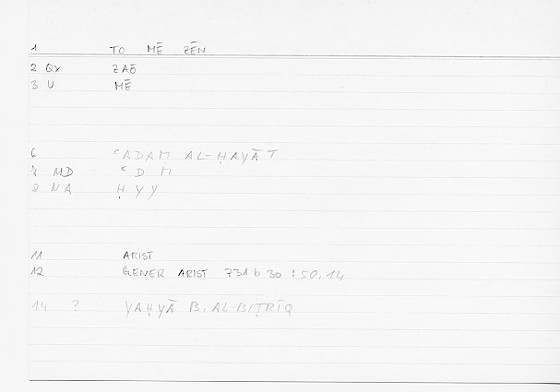 1 TO MĒ ZĒN
2 QX ZAŌ
3 U MĒ
6 ʿADAM AL-ḤAYĀT
8 MD ʿDM
9 NA ḤYY
11 ARIST
12 GENER ARIST 731 b 30 : 50,14
14 ? YAḤYĀ B. AL-BIṬRĪQ